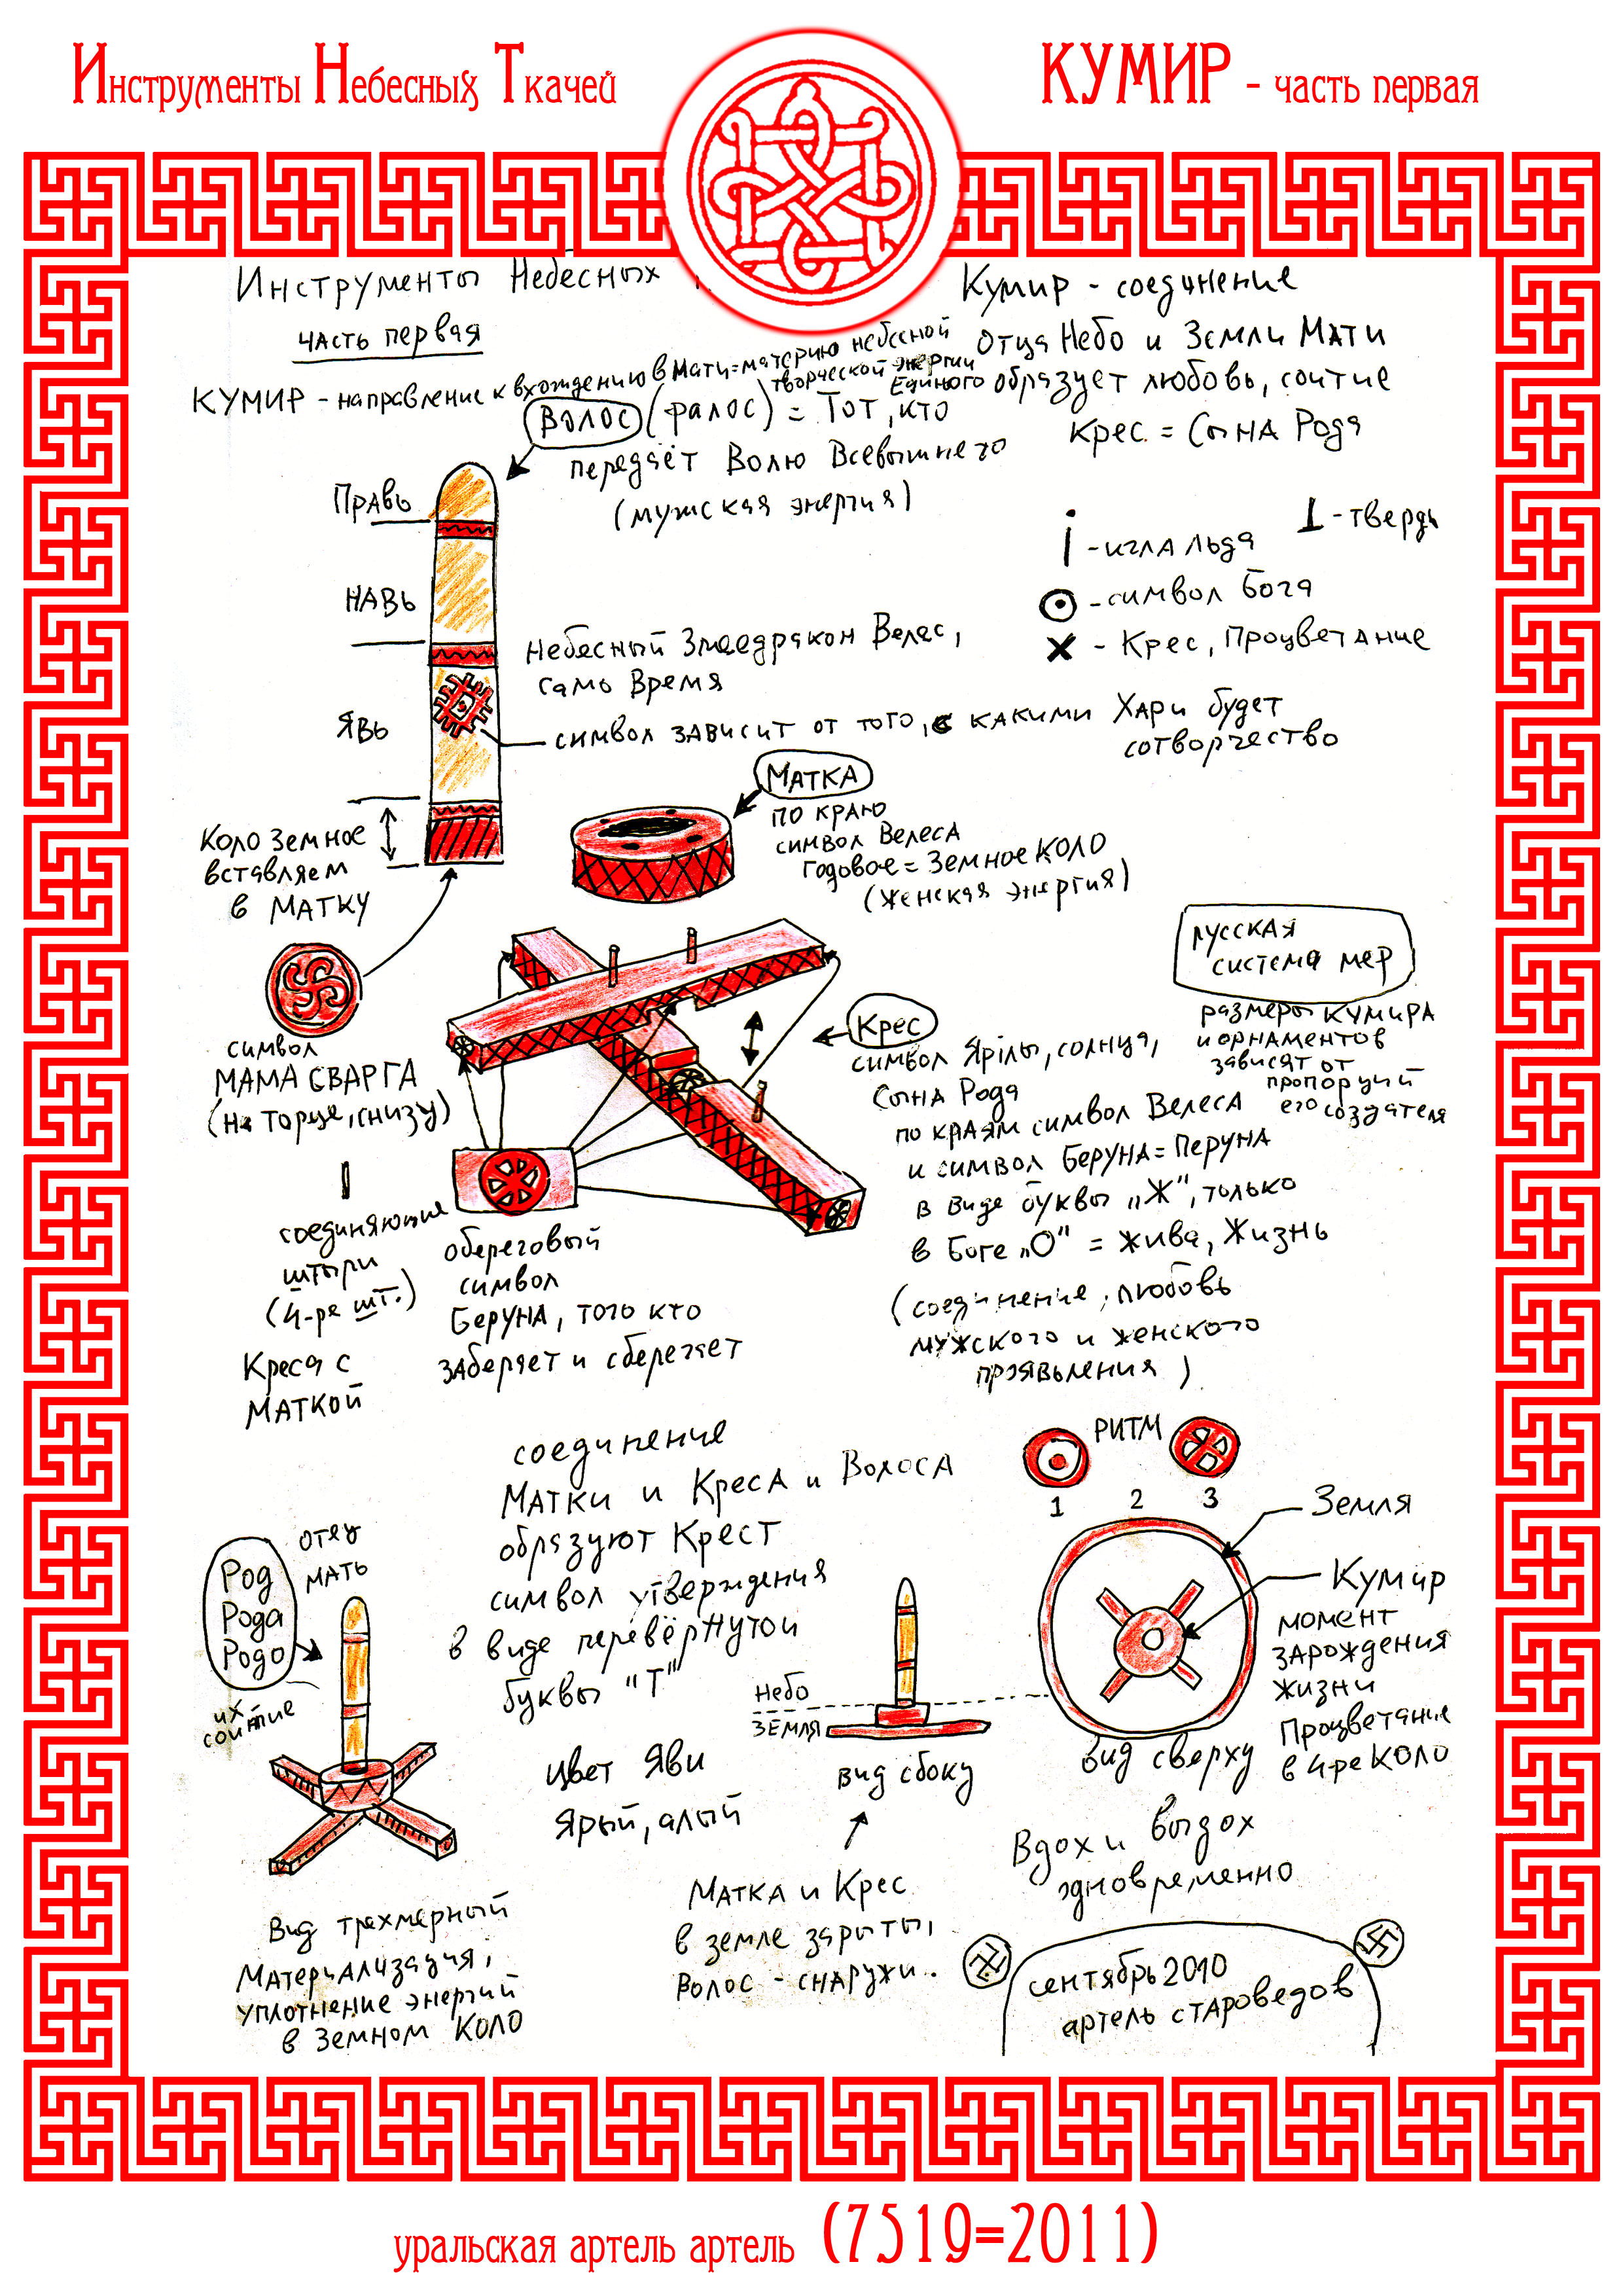 Инструменты Небесных Ткачей
КУМИР - часть первая
Инструменты Небесных
часть первая
КУМИР - направление к вхождению в Мати=материю небесной
творческой энергии
Единого
Волос (фалос) = Тот, кто
передаёт Волю Всевышнего
(мужская энергия)
Кумир - соединение
Отца Небо и Земли Мати
образует любовь, соитие
Крес = Сына Рода
i - игла льда
⊥ - твердь
⊙ - символ Бога
× - Крес, Процветание
Правь
НАВЬ
ЯВЬ
Небесный Змеедракон Велес,
само Время
символ зависит от того, с какими Хари будет
сотворчество
Коло Земное
вставляем
в МАТКУ
МАТКА
по краю
символ Велеса
Годовое = Земное КОЛО
(женская энергия)
символ
МАМА СВАРГА
(на торце, снизу)
русская
система мер
размеры КУМИРА
и орнаментов
зависят от
пропорций
его создателя
Крес
символ Ярилы, солнца,
Сына Рода
по краям символ Велеса
и символ Беруна = Перуна
в виде буквы „Ж", только
в Боге „О" = Жива, Жизнь
(соединение, любовь
мужского и женского
проявьления)
соединяющие
штыри
(4-ре шт.)
Креса с
МАТКОЙ
обереговый
символ
Беруна, того кто
заберает и сберегает
соединение
Матки и Креса и Волоса
образуют Крест
символ утверждения
в виде перевёрнутой
буквы "Т"
РИТМ
1 2 3
Земля
Кумир
момент
зарождения
жизни
Процветание
в 4-ре КОЛО
вид сверху
отец
мать
Род
Рода
Родо
их
соитие
Небо
ЗЕМЛЯ
вид сбоку
Цвет Яви
Ярый, алый
Вдох и выдох
одновременно
Матка и Крес
в земле зарыты,
Волос - снаружи.
Вид трехмерный
Материализация,
уплотнение энергий
в Земном КОЛО
сентябрь 2010
артель староведов
уральская артель артель (7519=2011)